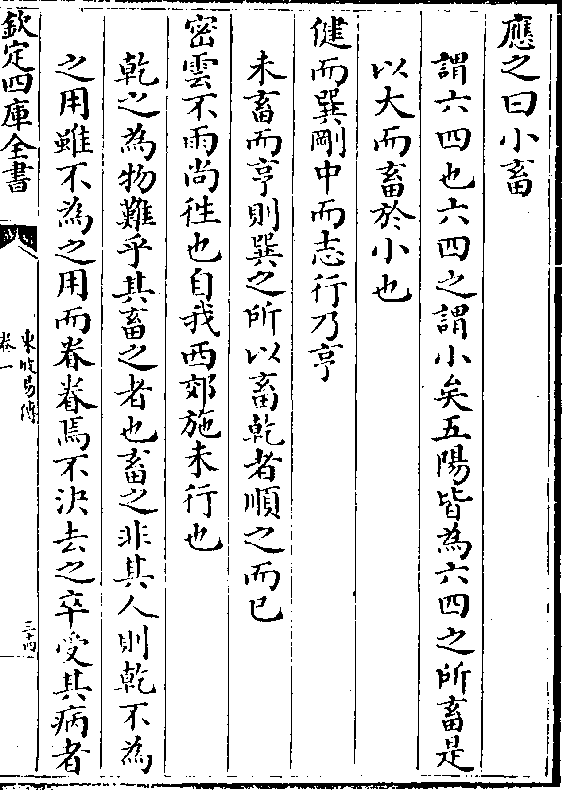 應之曰小畜
謂六四也六四之謂小矣五陽皆為六四之所畜是
以大而畜於小也
健而巽剛中而志行乃亨
未畜而亨則巽之所以畜乾者順之而已
密雲不雨尚徃也自我西郊施未行也
乾之為物難乎其畜之者也畜之非其人則乾不為
之用雖不為之用而眷眷焉不決去之卒受其病者
欽定四庫全書
東坡易傳
卷一
三十四